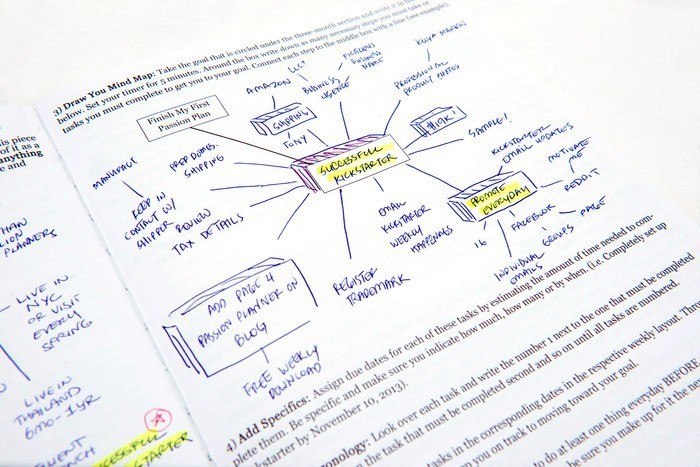 3) Draw You Mind Map: Take the goal that is circled under the three-month section and write it in
below. Set your timer for 5 minutes. Around the box write down as many necessary steps you must take or
tasks you must complete to get you to your goal. Connect each step to the middle box with a line (see example).
Finish My First
Passion Plan
AMAZON
LLC?
BUSINESS
LICENSE
FICTICIOUS
BUSINESS
NAME
PROFESSIONAL
PRODUCT PHOTOS
SHIPPING
TONY
$10K!
SAMPLE!
SUCCESSFULL
KICKSTARTER
MANUFACT
PREP DOMES.
SHIPPING
KEEP IN
CONTACT W/
SHIPPER
REVIEW
TAX DETAILS
EMAIL
KICKSTARTER
WEEKLY
HAPPENINGS
REGISTER
TRADEMARK
KICKSTARTER
EMAIL UPDATES
PROMOTE
EVERYDAY
MOTIVATE
ME
REDDIT
FACEBOOK
PAGE
GROUPS
IG
INDIVIDUAL
EMAILS
ADD PAGE 4
PASSION PLANNER ON
BLOG
FREE WEEKLY
DOWNLOAD
4) Add Specifics: Assign due dates for each of these tasks by estimating the amount of time needed to com-
plete them. Be specific and make sure you indicate how much, how many or by when. (i.e. Completely set up
kickstarter by November 10, 2013).
ronology: Look over each task and write the number 1 next to the one that must be completed
the task that must be completed second and so on until all tasks are numbered.
tasks in the corresponding dates in the respective weekly layout.
p you on track to moving toward your goal.
to do at least one thing everyday BEFORE
e sure you make up for it the
his piece
of it as a
anything
e and
HAN
LION
PLANNERS
LIVE IN
NYC
OR VISIT
EVERY
SPRING
LIVE IN
THAILAND
6MO-1YR
CESSFULL
STARTER